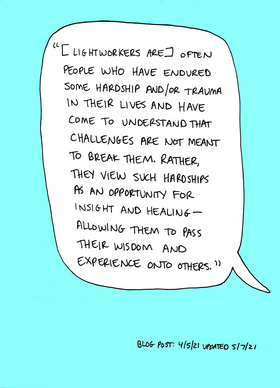 "[LIGHTWORKERS ARE] OFTEN
PEOPLE WHO HAVE ENDURED
SOME HARDSHIP AND/OR TRAUMA
IN THEIR LIVES AND HAVE
COME TO UNDERSTAND THAT
CHALLENGES ARE NOT MEANT
TO BREAK THEM. RATHER,
THEY VIEW SUCH HARDSHIPS
AS AN OPPORTUNITY FOR
INSIGHT AND HEALING—
ALLOWING THEM TO PASS
THEIR WISDOM AND
EXPERIENCE ONTO OTHERS."
BLOG POST: 4/5/21 UPDATED 5/7/21